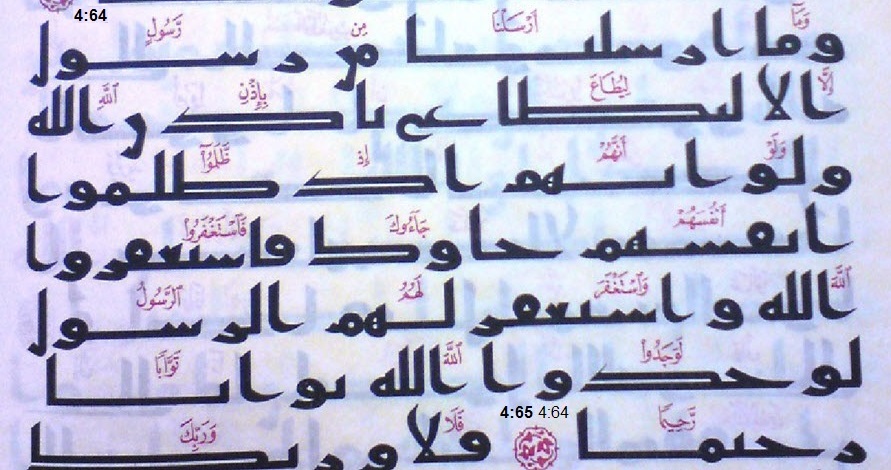 4:64
وَمَآ أَرْسَلْنَا مِن رَّسُولٍ
وما ارسلنا من رسول
إِلَّا لِيُطَاعَ بِإِذْنِ ٱللَّهِ
الا ليطاع باذن الله
وَلَوْ أَنَّهُمْ إِذ ظَّلَمُوٓا۟
ولو انهم اذ ظلموا
أَنفُسَهُمْ جَآءُوكَ فَٱسْتَغْفَرُوا۟
انفسهم جاوك فاستغفروا
ٱللَّهَ وَٱسْتَغْفَرَ لَهُمُ ٱلرَّسُولُ
الله واستغفر لهم الرسول
لَوَجَدُوا۟ ٱللَّهَ تَوَّابًا
لوجدوا الله توابا
رَّحِيمًا 4:64 4:65 فَلَا وَرَبِّكَ
رحيما فلا وربك